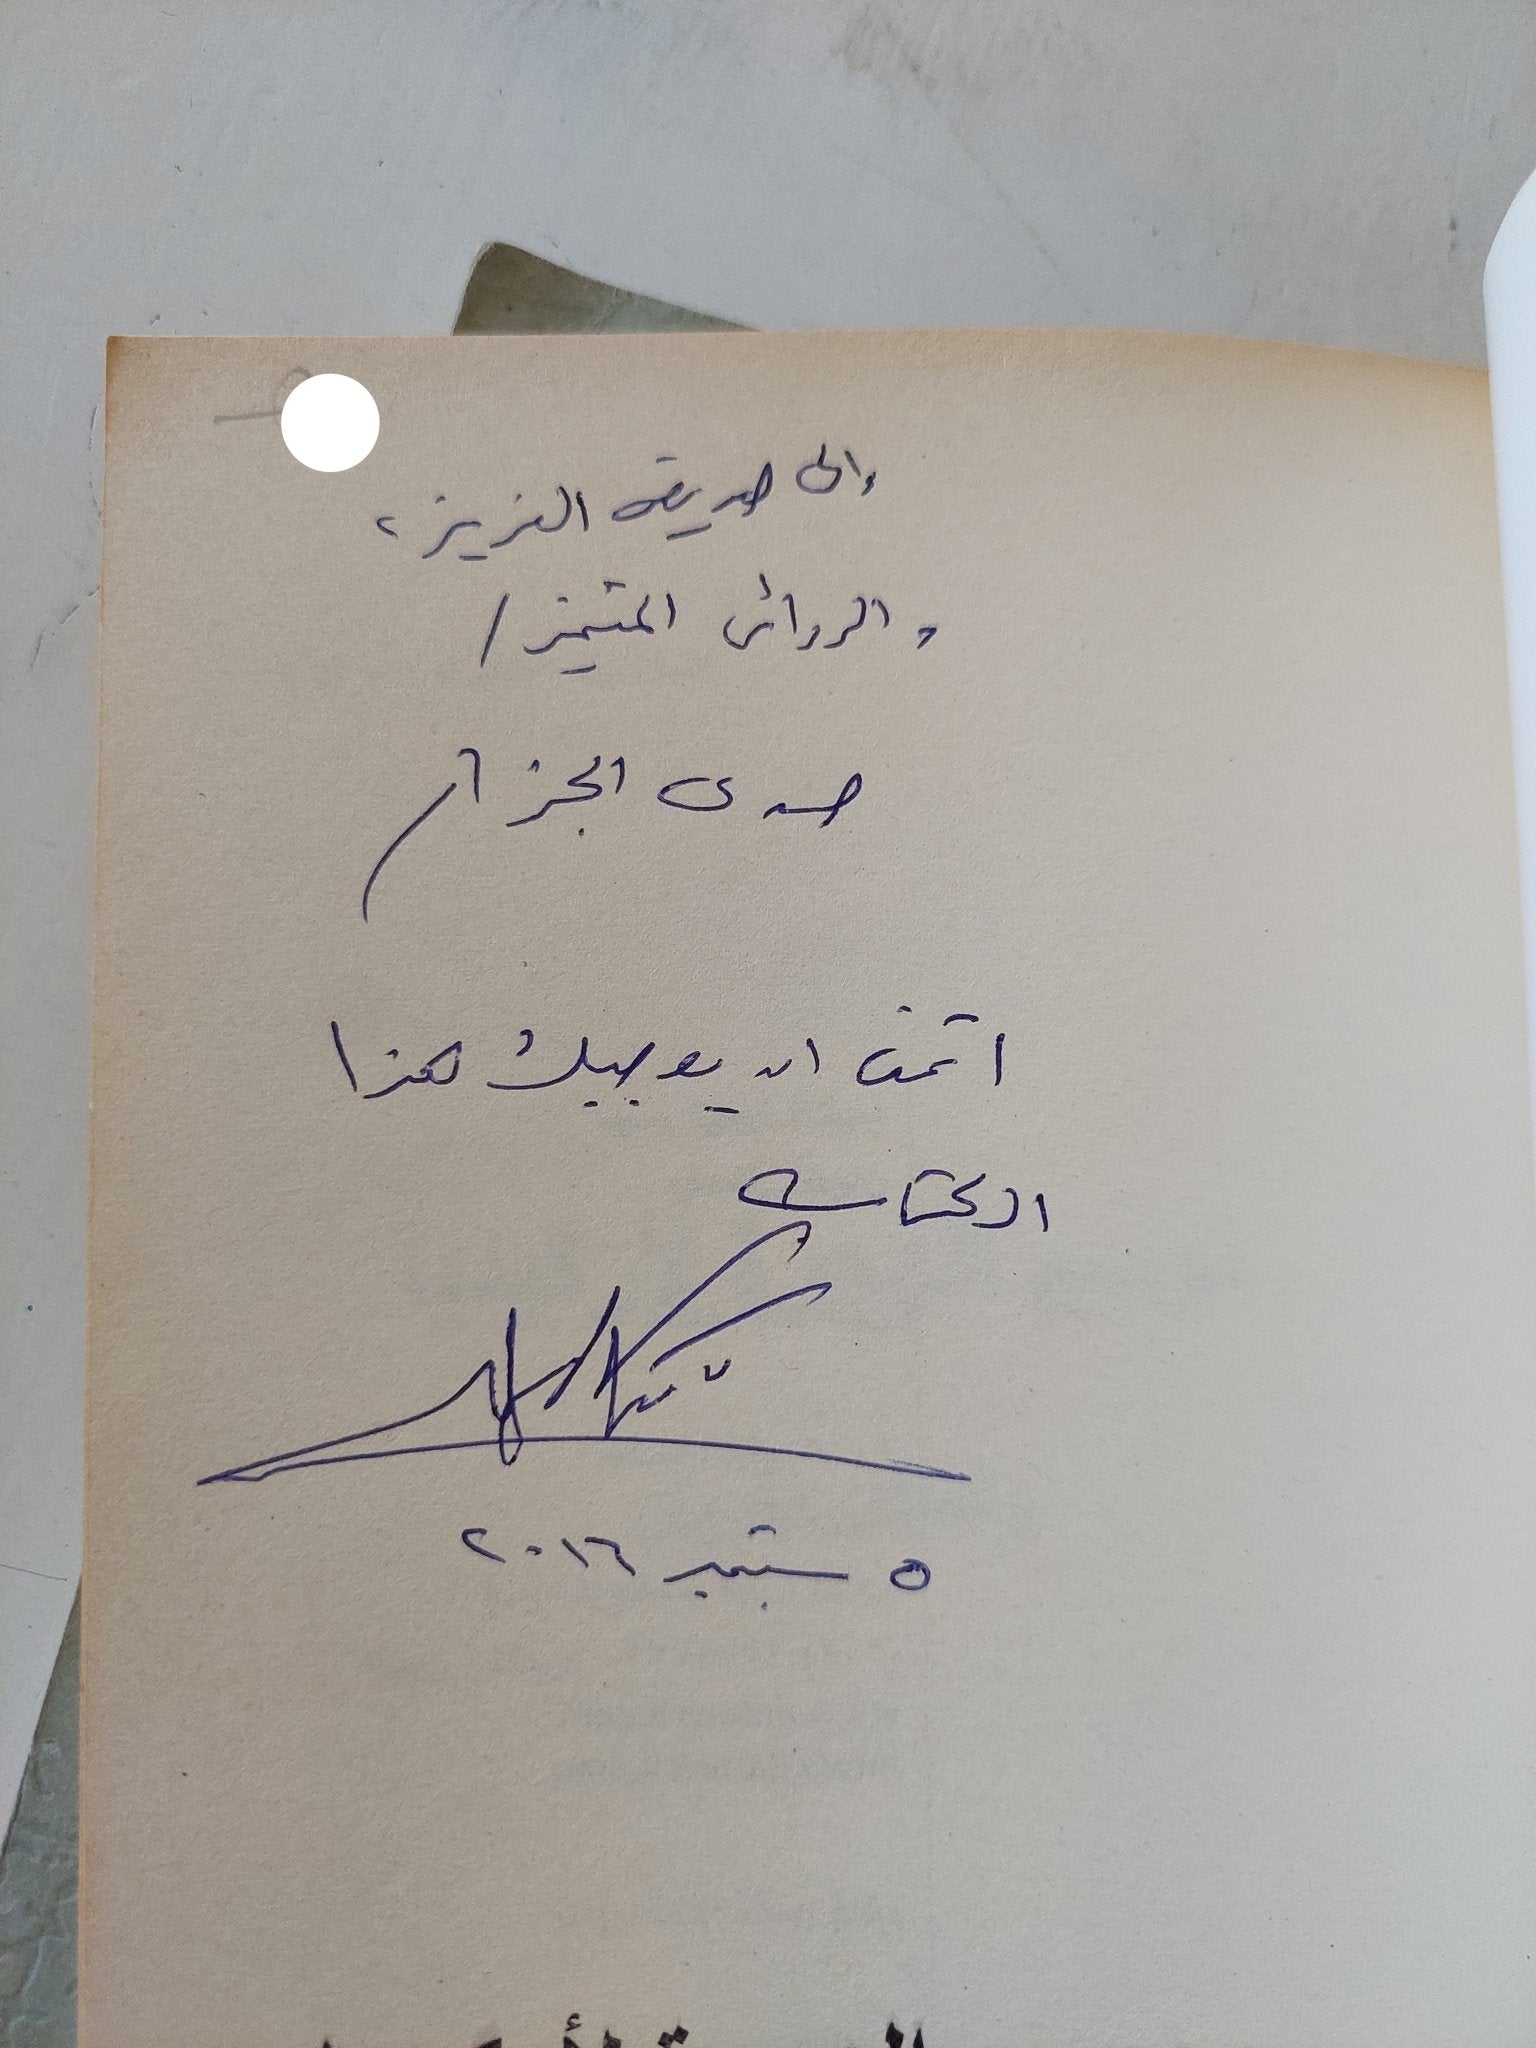 إلى صديقى العزيز،
والروائى المتميز /
حمدى الجزار
اتمنى ان يعجبك هذا
الكتاب
٥ سبتمبر ٢٠١٦